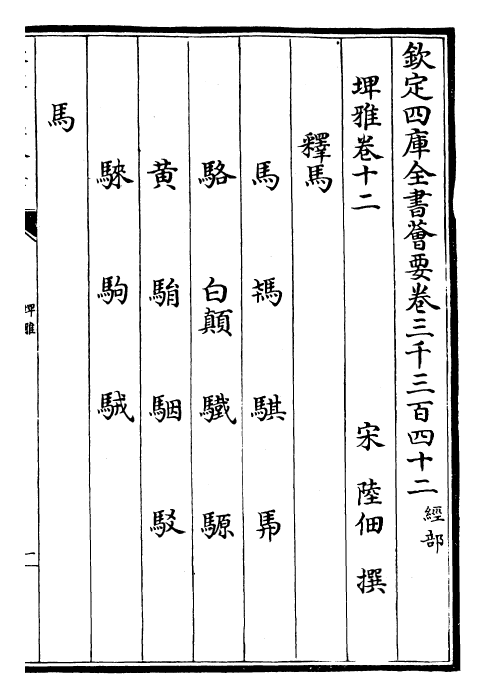 欽定四庫全書薈要卷三千三百四十二 經部
埤雅卷十二 宋 陸佃 撰
釋馬
馬 騏
駱 白顛 驖 騵
黄 駽 駰 駁
騋 駒 駥
馬
埤雅
一